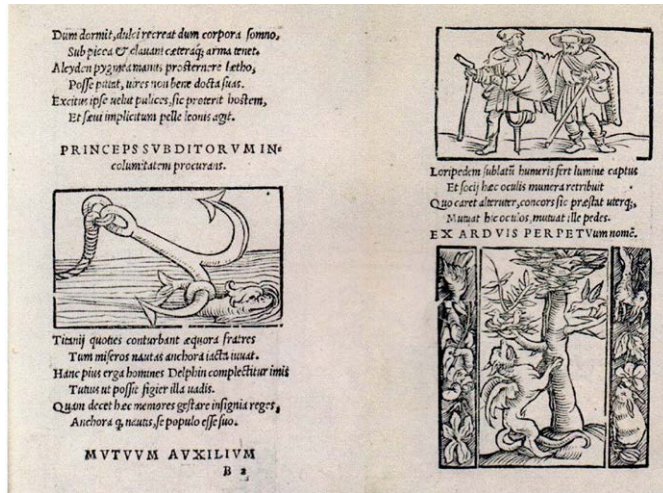 Dum dormit, dulci recreat dum corpora somno,
Sub picea & clauam cæteraq; arma tenet.
Alcyden pygmea manus prosternere lætho,
Posse putat, uires non bene docta suas.
Excitus ipse uelut pulices, sic proterit hostem,
Et sæui implicitum pelle leonis agit.
PRINCEPS SVBDITORVM IN=
columitatem procurans.
Titanij quoties conturbant æquora fratres
Tum miseros nautas anchora iacta iuuat.
Hanc pius erga homines Delphin complectitur imis
Tutius ut possit figier illa uadis.
Quàm decet hæc memores gestare insignia reges,
Anchora q, nautis, se populo esse suo.
MVTVVM AVXILIVM
B 2
Loripedem sublatū humeris fert lumine captus
Et socij hæc oculis munera retribuit
Quo caret alteruter, concors sic præstat uterq;,
Mutuat hic oculos, mutuat ille pedes.
EX ARDVIS PERPETVum nomē.